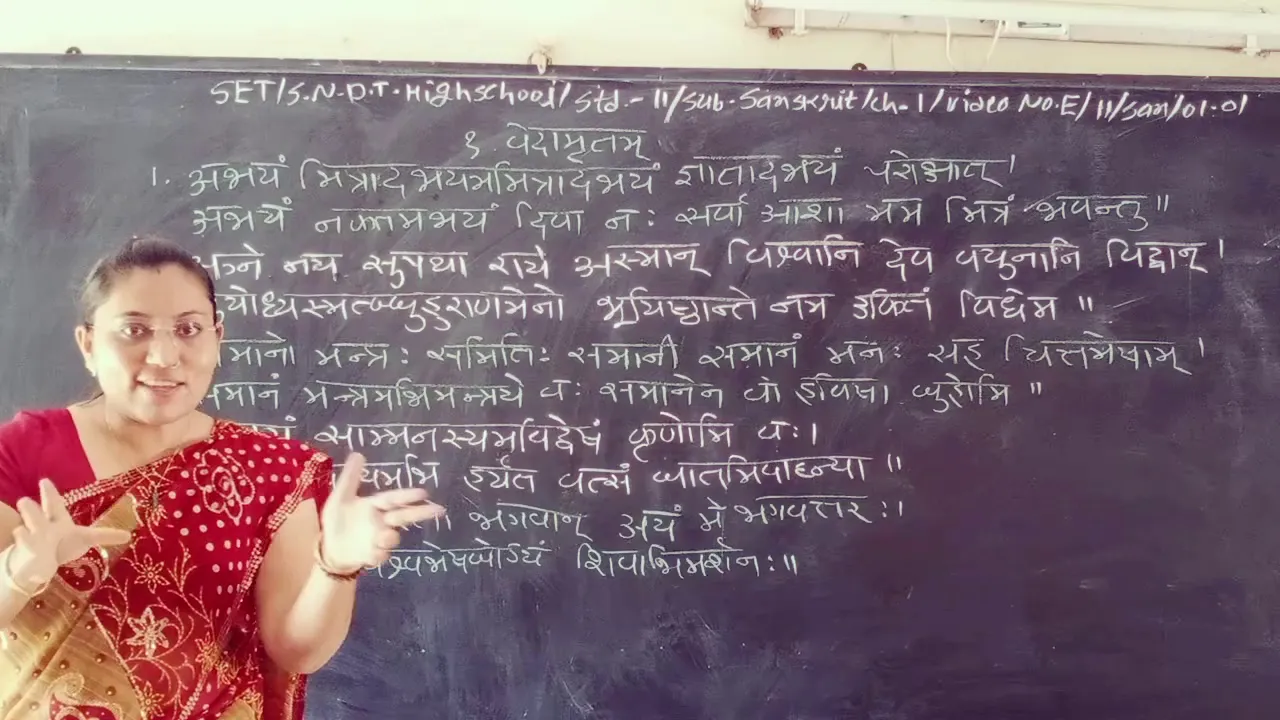 SET/S.N.D.T. Highschool/Std.-11/Sub.Sanskrit/ch-1/video No.E/11/san/01.01
१. वेदामृतम्
1. अभयं मित्रादभयममित्रादभयं ज्ञातादभयं परोक्षात्।
अभयं नक्तमभयं दिवा नः सर्वा आशा मम मित्रं भवन्तु॥
अग्ने नय सुपथा राये अस्मान् विश्वानि देव वयुनानि विद्वान्।
योध्यस्मत्जुहुराणमेनो भूयिष्ठान्ते नम उक्तिं विधेम॥
मानो मन्त्रः समितिः समानी समानं मनः सह चित्तमेषाम्।
समानं मन्त्रमभिमन्त्रये वः समानेन वो हविषा जुहोमि॥
साम्मनस्यमविद्वेषं कृणोमि वः।
यमभि हर्यत वत्सं जातमिवाघ्न्या॥
भगवान् अयं मे भगवत्तरः।
श्वभेषजोऽयं शिवाभिमर्शनः॥